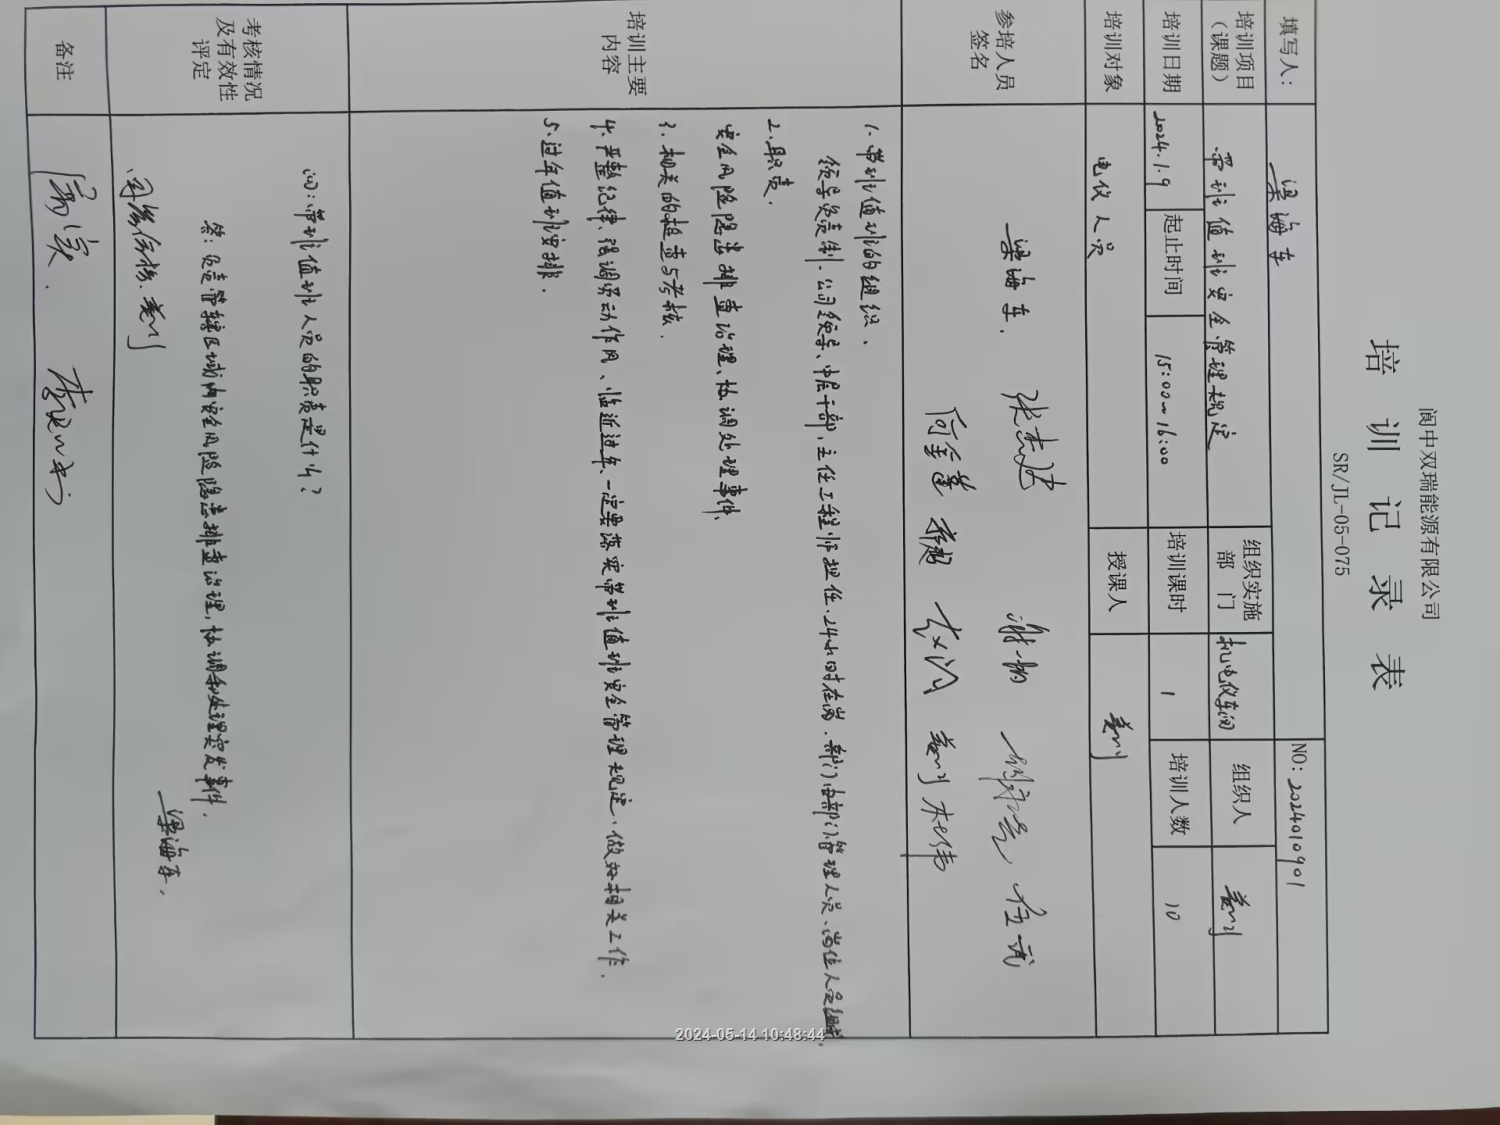 阆中双瑞能源有限公司
培训记录表
SR/JL-05-075
NO: 2024010901
填写人: 梁海东
培训项目（课题） 带班值班安全管理规定 组织实施部门 机电仪车间 组织人
培训日期 2024.1.9 起止时间 15:00~16:00 培训课时 1 培训人数 10
培训对象 电仪人员 授课人
参培人员签名 梁海东.
培训主要内容
1. 带班值班的组织.
领导负责制.公司领导、中层干部,主任工程师担任.24小时在岗.部门由部门管理人员、岗位人员组成.
2. 职责.
安全风险隐患排查治理、协调处理事件.
3. 相关的检查与考核.
4. 严整纪律、强调劳动作风、临近过年、一定要落实带班值班安全管理规定.做好相关工作.
5. 过年值班安排.
考核情况及有效性评定
问:带班值班人员的职责是什么?
答:负责管辖区域内安全风险隐患排查治理,协调和处理突发事件.
梁海东.
备注
2024-05-14 10:48:44